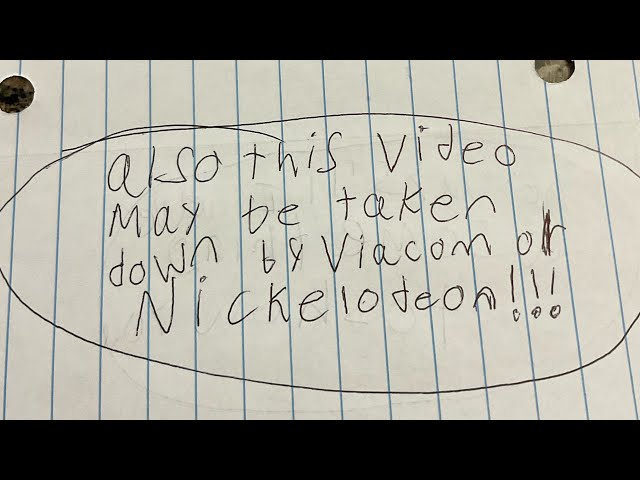 also this Video
May be taken
down by Viacom or
Nickelodeon!!!